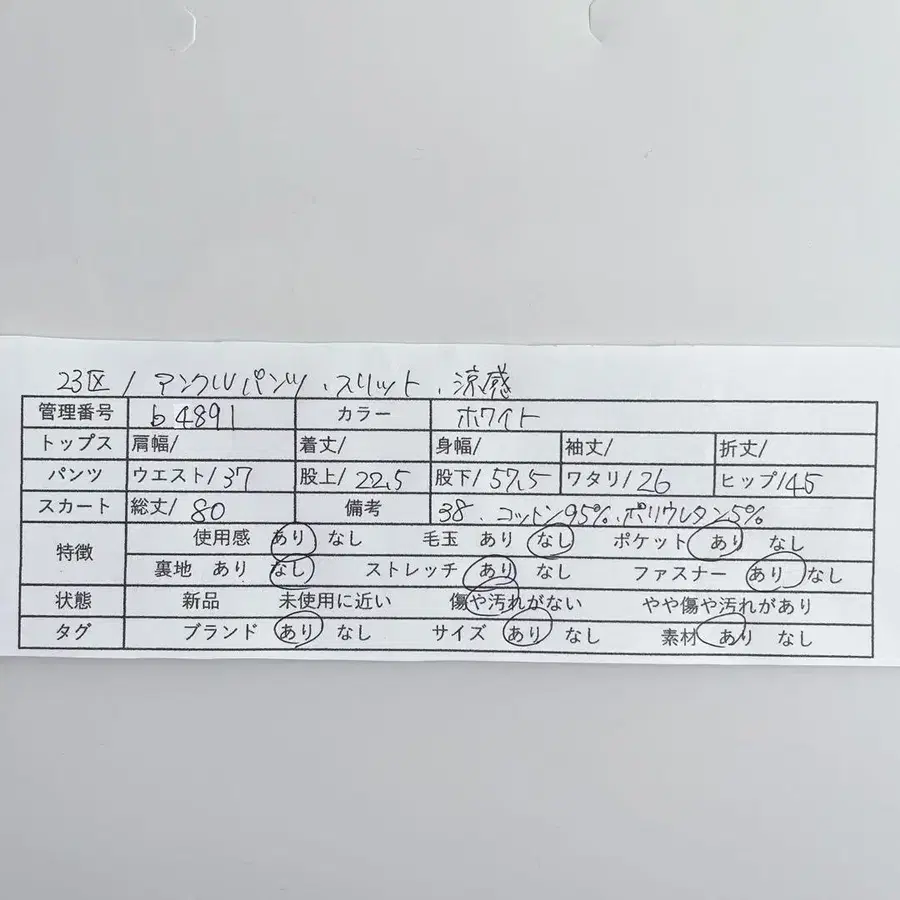 23区/アンクルパンツ、スリット、涼感
管理番号 b4891 カラー ホワイト
トップス 肩幅/ 着丈/ 身幅/ 袖丈/ 折丈/
パンツ ウエスト/37 股上/22,5 股下/57,5 ワタリ/26 ヒップ/45
スカート 総丈/80 備考 38、コットン95%、ポリウレタン5%
特徴 使用感 あり なし 毛玉 あり なし ポケット あり なし
裏地 あり なし ストレッチ あり なし ファスナー あり なし
状態 新品 未使用に近い 傷や汚れがない やや傷や汚れがあり
タグ ブランド あり なし サイズ あり なし 素材 あり なし